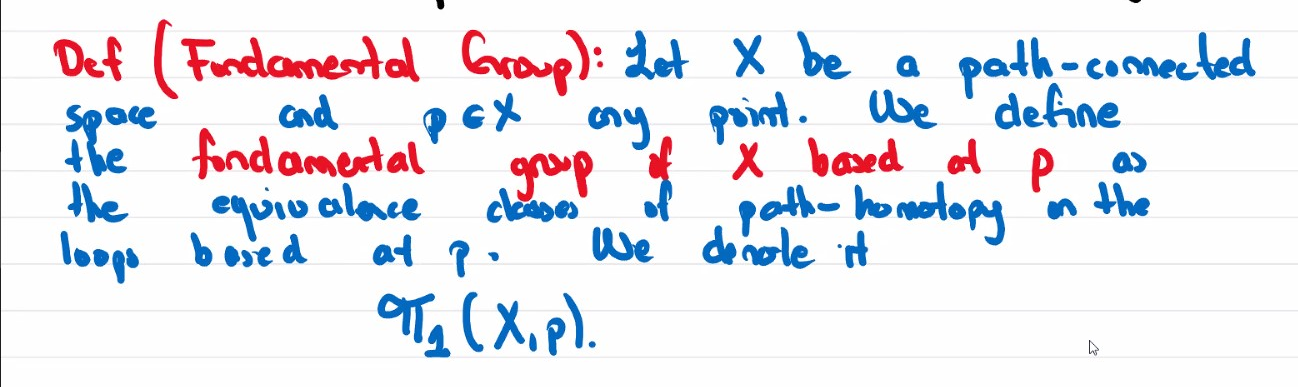 Def (Fundamental Group): Let X be a path-connected
space and p ∈ X any point. We define
the fundamental group of X based at p as
the equivalence classes of path-homotopy on the
loops based at p. We denote it
π₁(X, p).